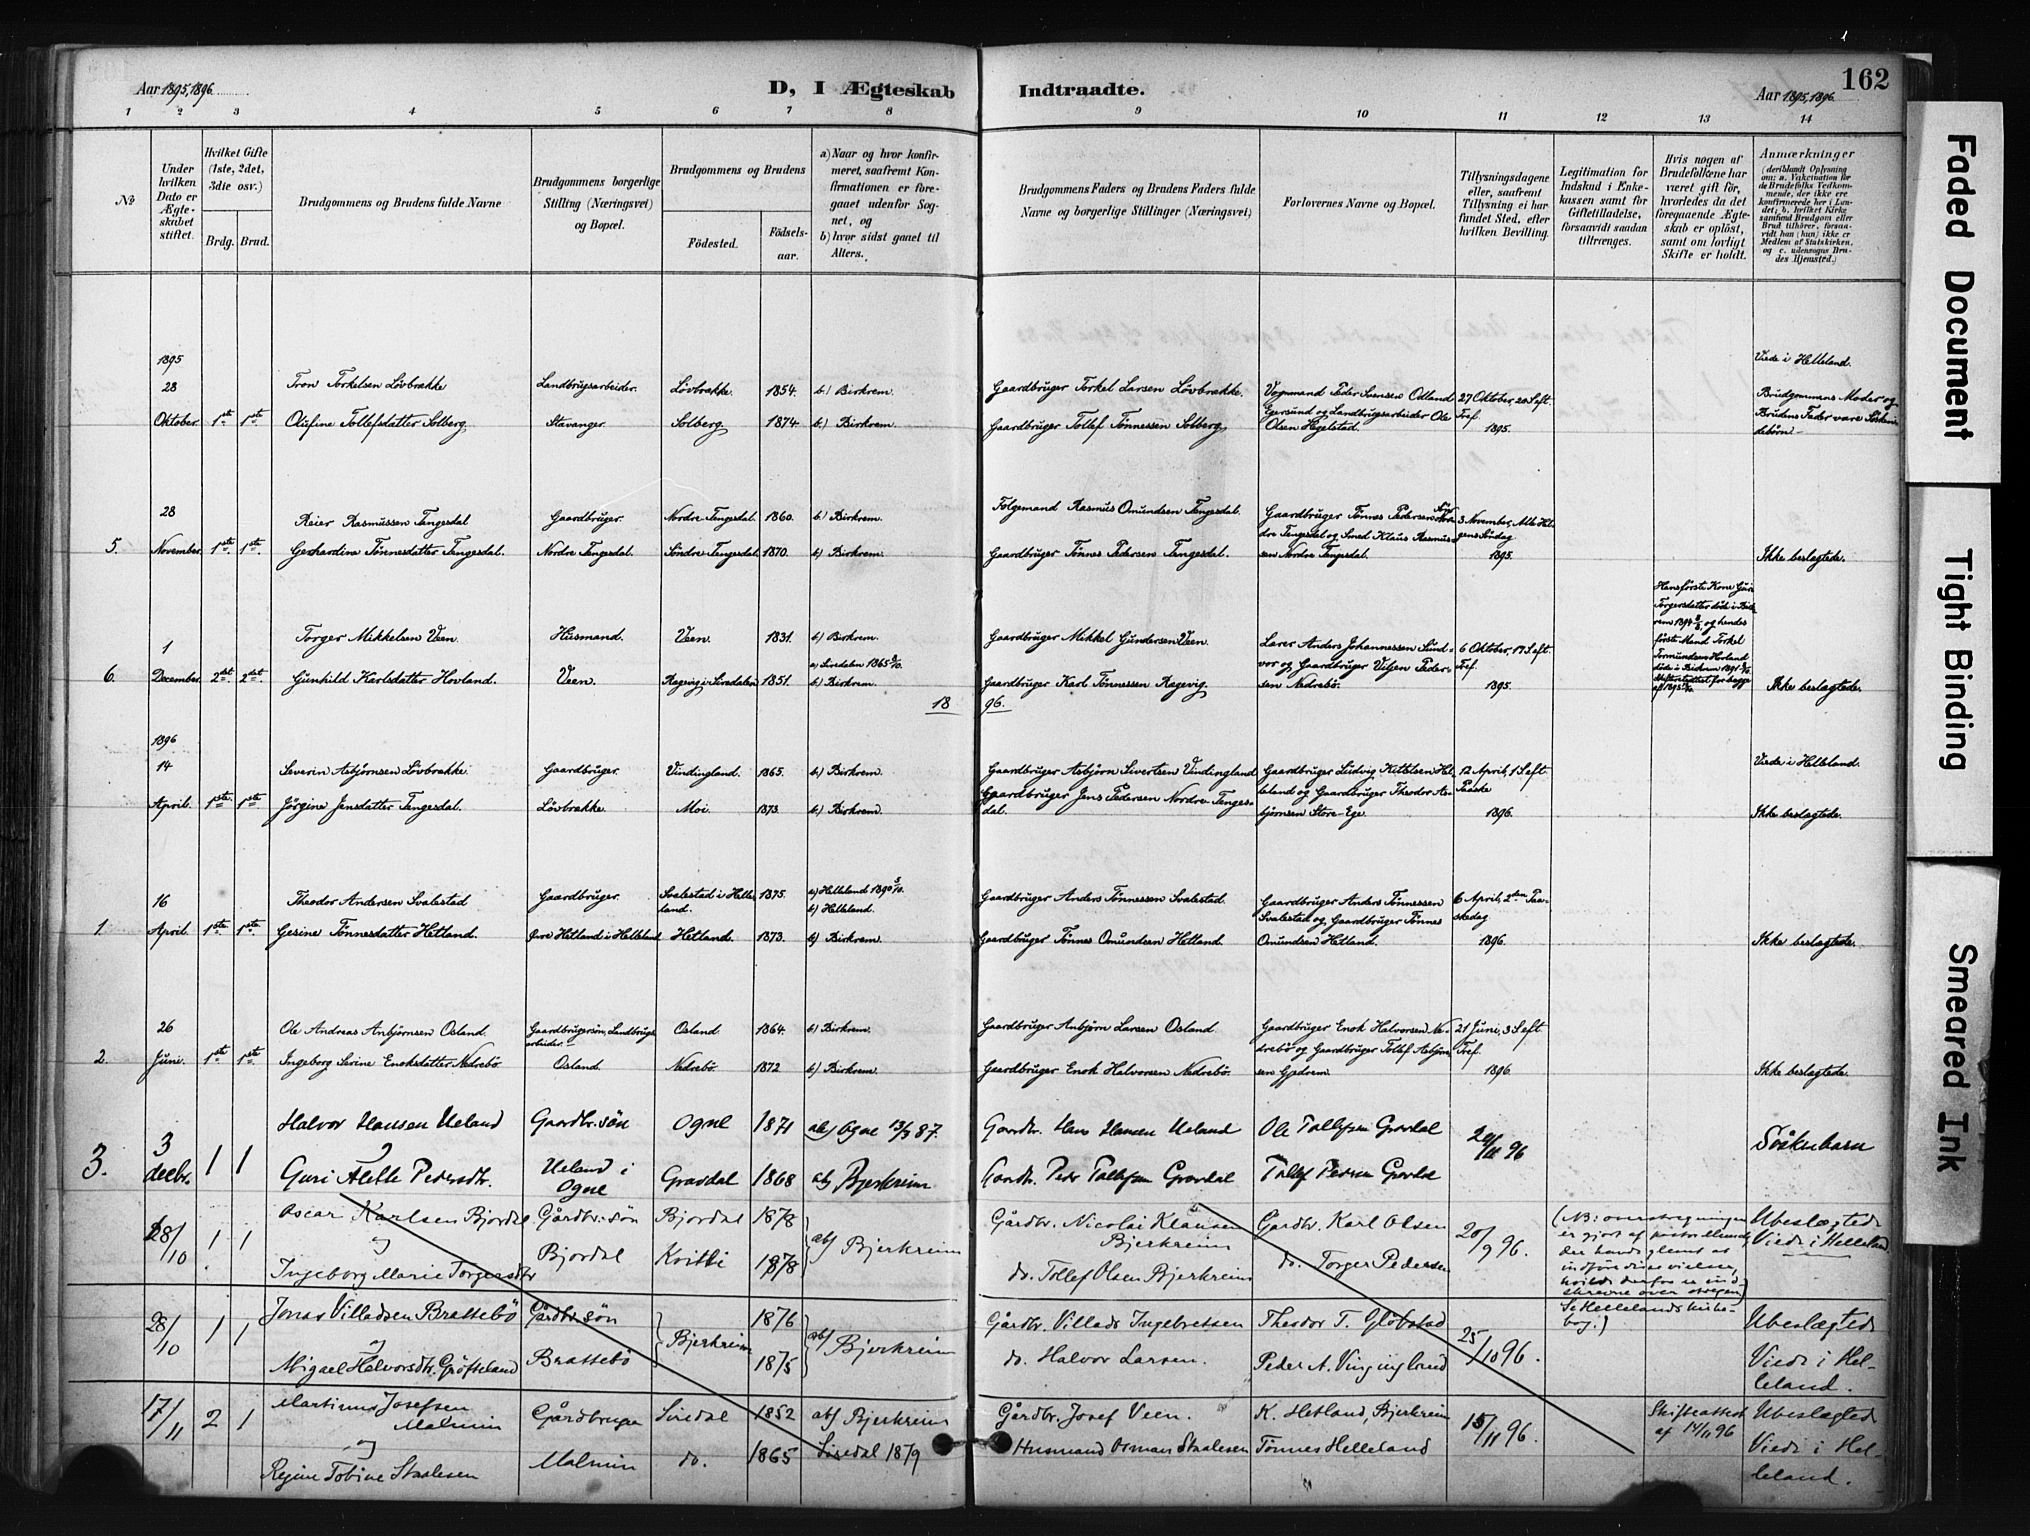 Aar 1895, 1896.
D, I Ægteskab
Indtraadte.
Aar 1895, 1896.
162
1 2 3 4 5 6 7 8 9 10 11 12 13 14
No
Under hvilken Dato er Ægteskabet stiftet.
Hvilket Gifte (1ste, 2det, 3die osv.)
Brdg. Brud.
Brudgommens og Brudens fulde Navne
Brudgommens borgerlige Stilling (Næringsvei) og Bopæl.
Brudgommens og Brudens
Fødested.
Fødselsaar.
a) Naar og hvor konfirmeret, saafremt Konfirmationen er foregaaet udenfor Sognet, og
b) hvor sidst gaaet til Alters.
Brudgommens Faders og Brudens Faders fulde Navne og borgerlige Stillinger (Næringsvei)
Forlovernes Navne og Bopæl.
Tillysningsdagene eller, saafremt Tillysning ei har fundet Sted, efter hvilken Bevilling.
Legitimation for Indskud i Enkekassen samt for Giftetilladelse, forsaavidt saadan tiltrænges.
Hvis nogen af Brudefolkene har været gift før, hvorledes da det foregaaende Ægteskab er opløst, samt om lovligt Skifte er holdt.
Anmærkninger
1895
28 Tron Torkelsen Løvbrække Landbrugsarbeider. Løvbrække. 1854. b.) Birkrem. Gaardbruger Torkel Larsen Løvbrække. Vognmand Peder Svensen Odland 27 Oktober, 20 S. eft. Viede i Helleland.
Oktober. 1ste 1ste Olufine Tollefsdatter Solberg. Stavanger. Solberg 1874 b.) Birkrem. Gaardbruger Tollef Tønnessen Solberg Egersund og Landbrugsarbeider Ole Olsen Hegelstad. Tref. 1895. Brudgommens Moder og Brudens Fader vare Søskendebørn.
28 Reier Rasmussen Tengesdal Gaardbruger. Nordre-Tengesdal. 1860. b.) Birkrem. Folgemand Rasmus Omundsen Tengesdal. Gaardbruger Tønnes Pedersen 3 November, Alle Helgens Søndag
5. November. 1ste 1ste Gerhardine Tønnesdatter Tengesdal. Nordre Tengesdal. Søndre-Tengesdal 1870. b) Birkrem. Gaardbruger Tønnes Pedersen Tengesdal. Tengesdal og Smed Klaus Rasmussen Nordre Tengesdal. 1895. Ikke beslægtede.
1 Torger Mikkelsen Veen. Husmand. Veen. 1831. b) Birkrem. Gaardbruger Mikkel Gundersen Veen. Lærer Anders Johannessen Sundvor og Gaardbruger 6 Oktober, 17 S. eft. Tref.
6. December. 2det 2det Gunhild Karlsdatter Hovland. Veen. Ragevig i Siredalen 1851. a) Siredalen 1865 b.) Birkrem. Gaardbruger Karl Tønnessen Ragevig. Pedersen Nedrebø. 1895. Ikke beslægtede.
1896.
1896
14 Severin Asbjørnsen Løvbrække. Gaardbruger. Vindingland. 1865. b.) Birkrem. Gaardbruger Asbjørn Sivertsen Vindingland Gaardbruger Ludvig Kittelsen Helleland og Gaardbruger Theodor Asbjørnsen Store-Ege. 12 April, 1 S. eft. Paaske Viede i Helleland.
April. 1ste 1ste Jørgine Jensdatter Tengesdal. Løvbrække. Moi. 1873. b.) Birkrem. Gaardbruger Jens Pedersen Nordre-Tengesdal. 1896. Ikke beslægtede.
16 Theodor Andersen Svalestad Gaardbruger. Svalestad i Helleland. 1875. a) Helleland 1890 b) Helleland. Gaardbruger Anders Tønnessen Svalestad. Gaardbruger Anders Tønnessen Svalestad og Gaardbruger Tønnes Omundsen Hetland. 6 April, 2den Paaskedag
1. April. 1ste 1ste Gesine Tønnesdatter Hetland. Hetland i Helleland Hetland. 1873. b) Birkrem. Gaardbruger Tønnes Omundsen Hetland. 1896. Ikke beslægtede.
26 Ole Andreas Anbjørnsen Osland Gaardbrugersøn, Landbrugsarbeider. Osland 1864. b.) Birkrem. Gaardbruger Anbjørn Larsen Osland Gaardbruger Enok Halvorsen Nedrebø og Gaardbruger Tollef Asbjørnsen Gjedrem. 21 Juni, 3 S. eft. Tref.
2. Juni. 1ste 1ste Ingeborg Serine Enoksdatter Nedrebø. Osland. Nedrebø. 1872 b.) Birkrem. Gaardbruger Enok Halvorsen Nedrebø. 1896. Ikke beslægtede.
3. 3 decbr. 1 1 Halvor Hansen Ueland Gaardbr. søn Ogne 1871 Ogne 13/5 87. Gaardbr. Hans Hansen Ueland Ole Tollefsen Gravdal 96 Søskenbarn
Guri Alette Pedersdtr. Ueland i Ogne Gravdal 1868 Bjerkreim Gaardbr. Peder Tollefsen Gravdal Tollef Pedersen Gravdal
28/10 1 1 Oscar Karlsen Bjordal Gårdbr. søn Bjordal 1878 ab) Bjerkreim Gårdbr. Nicolai Klausen Bjerkreim Gardbr. Karl Olsen 20/9 96. (NB: overstregningen er gjort af pastor der havde glemt at indføre disse vielser, hvilke derfor er indskrevne over stregen) Ubeslægtede Viede i Helleland
og Ingeborg Marie Torgersdtr Bjordal Kvitti 1878 do. Tollef Olsen Bjerkreim do. Torger Pedersen
28/10 1 1 Jonas Villadsen Brattebø Gårdbr. søn Bjerkreim 1876 ab) Bjerkreim Gårdbr. Villads Ingebretsen Theodor T. Gløbstad 25/10 96. Se Hellelands kirkebog.) Ubeslægtede
og Migael Halvorsdtr. Grøfteland Brattebø 1875 do. Halvor Larsen. Peder A. Vinginglund Viede i Helleland.
17/11 2 1 Martinus Josefsen Malmin Gårdbruger Siredal 1852 ab) Bjerkreim Gårdbr. Josef Veen. K. Hetland, Bjerkreim 15/11 96. Skifteattest af 14/11 96 Ubeslægtede
og Regine Tobine Staalesen Malmin do. 1865 Siredal 1879 Husmand Osman Staalesen Tønnes Helleland Viede i Helleland.
Faded Document
Tight Binding
Smeared Ink